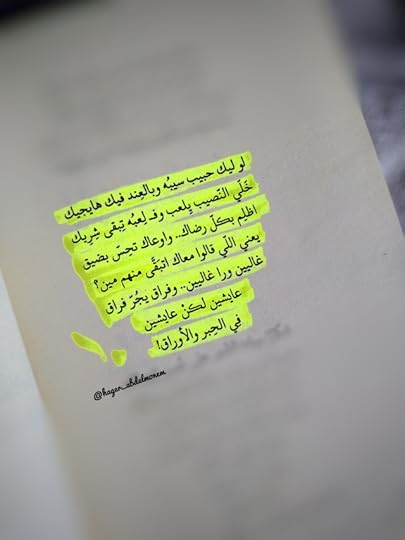 لو ليك حبيب سيبُه وبالعِند فيك هايجيك
خَلّي النّصيب يِلعب وفـ لِعبُه يَبقى شِريك
اظلِم بكلّ رضاك.. واوعاك تحِسّ بضيق
يعني اللّي قالوا معاك اتبَقَّى منهم مين؟
غاليين ورا غاليين.. وفراق يِجُرّ فراق
عايشين لكنْ عايشين
في الحِبر والأوراق!
@hager_abdelmonem